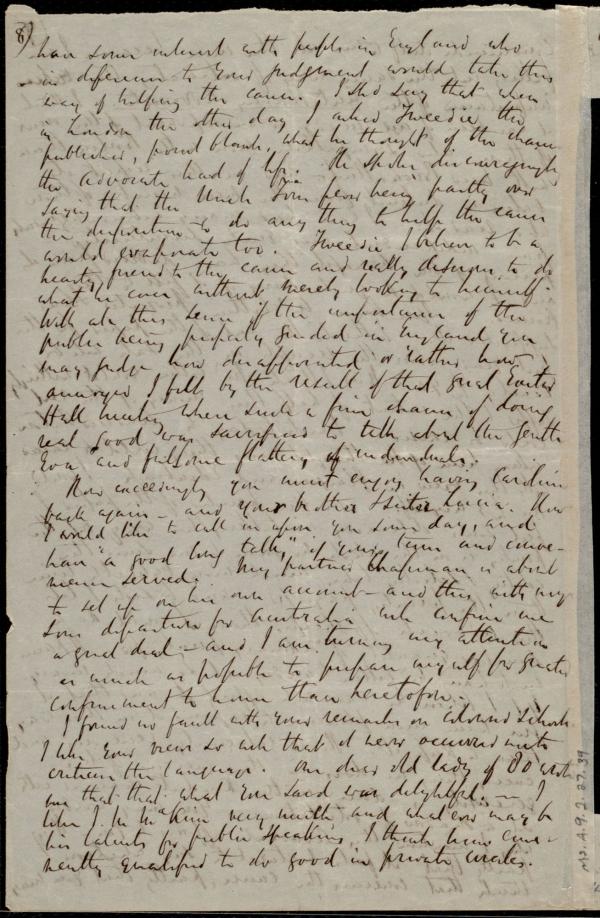 8)
have some interest with people in England who
in deference to your judgment would take this
way of helping the cause. I shd say that when
in London the other day I asked Tweedie the
publisher, point blank, what he thought of the chance
the Advocate had of life. He spoke discouragingly
saying that the Uncle Tom fever being partly over
the disposition to do any thing to help the cause
would evaporate too. Tweedie I believe to be a
hearty friend to the cause and really desirous to do
what he can without merely looking to himself.
With all this sense of the importance of the
public being properly guided in England, you
may judge how disappointed or rather how
annoyed I felt by the result of that great Exeter
Hall meeting when such a fine chance of doing
real good was sacrificed to talk about the gentle
Eva and fulsome flattery of individuals.
How exceedingly you must enjoy having Caroline
back again - and your brother & sister Lucia. How
I would like to call in upon you some day, and
have "a good long talk," if your time and conve-
nience served. My partner Chapman is about
to set up on his own account - and this with my
sons departure for Australia will confine me
a good deal - and I am turning my attention
as much as possible to prepare myself for greater
confinement to home than heretofore.
I found no fault with your remarks on Colored Schools
I like your views so well that it never occurred to me to
criticise the language. Our dear old lady of 80 wrote
me that that what you said was delightful. - I
like J. M. McKim very much and whatever may be
his talents for public speaking, I think him emi-
nently qualified to do good in private circles.
Ms. A. 9. 2. 27. 39